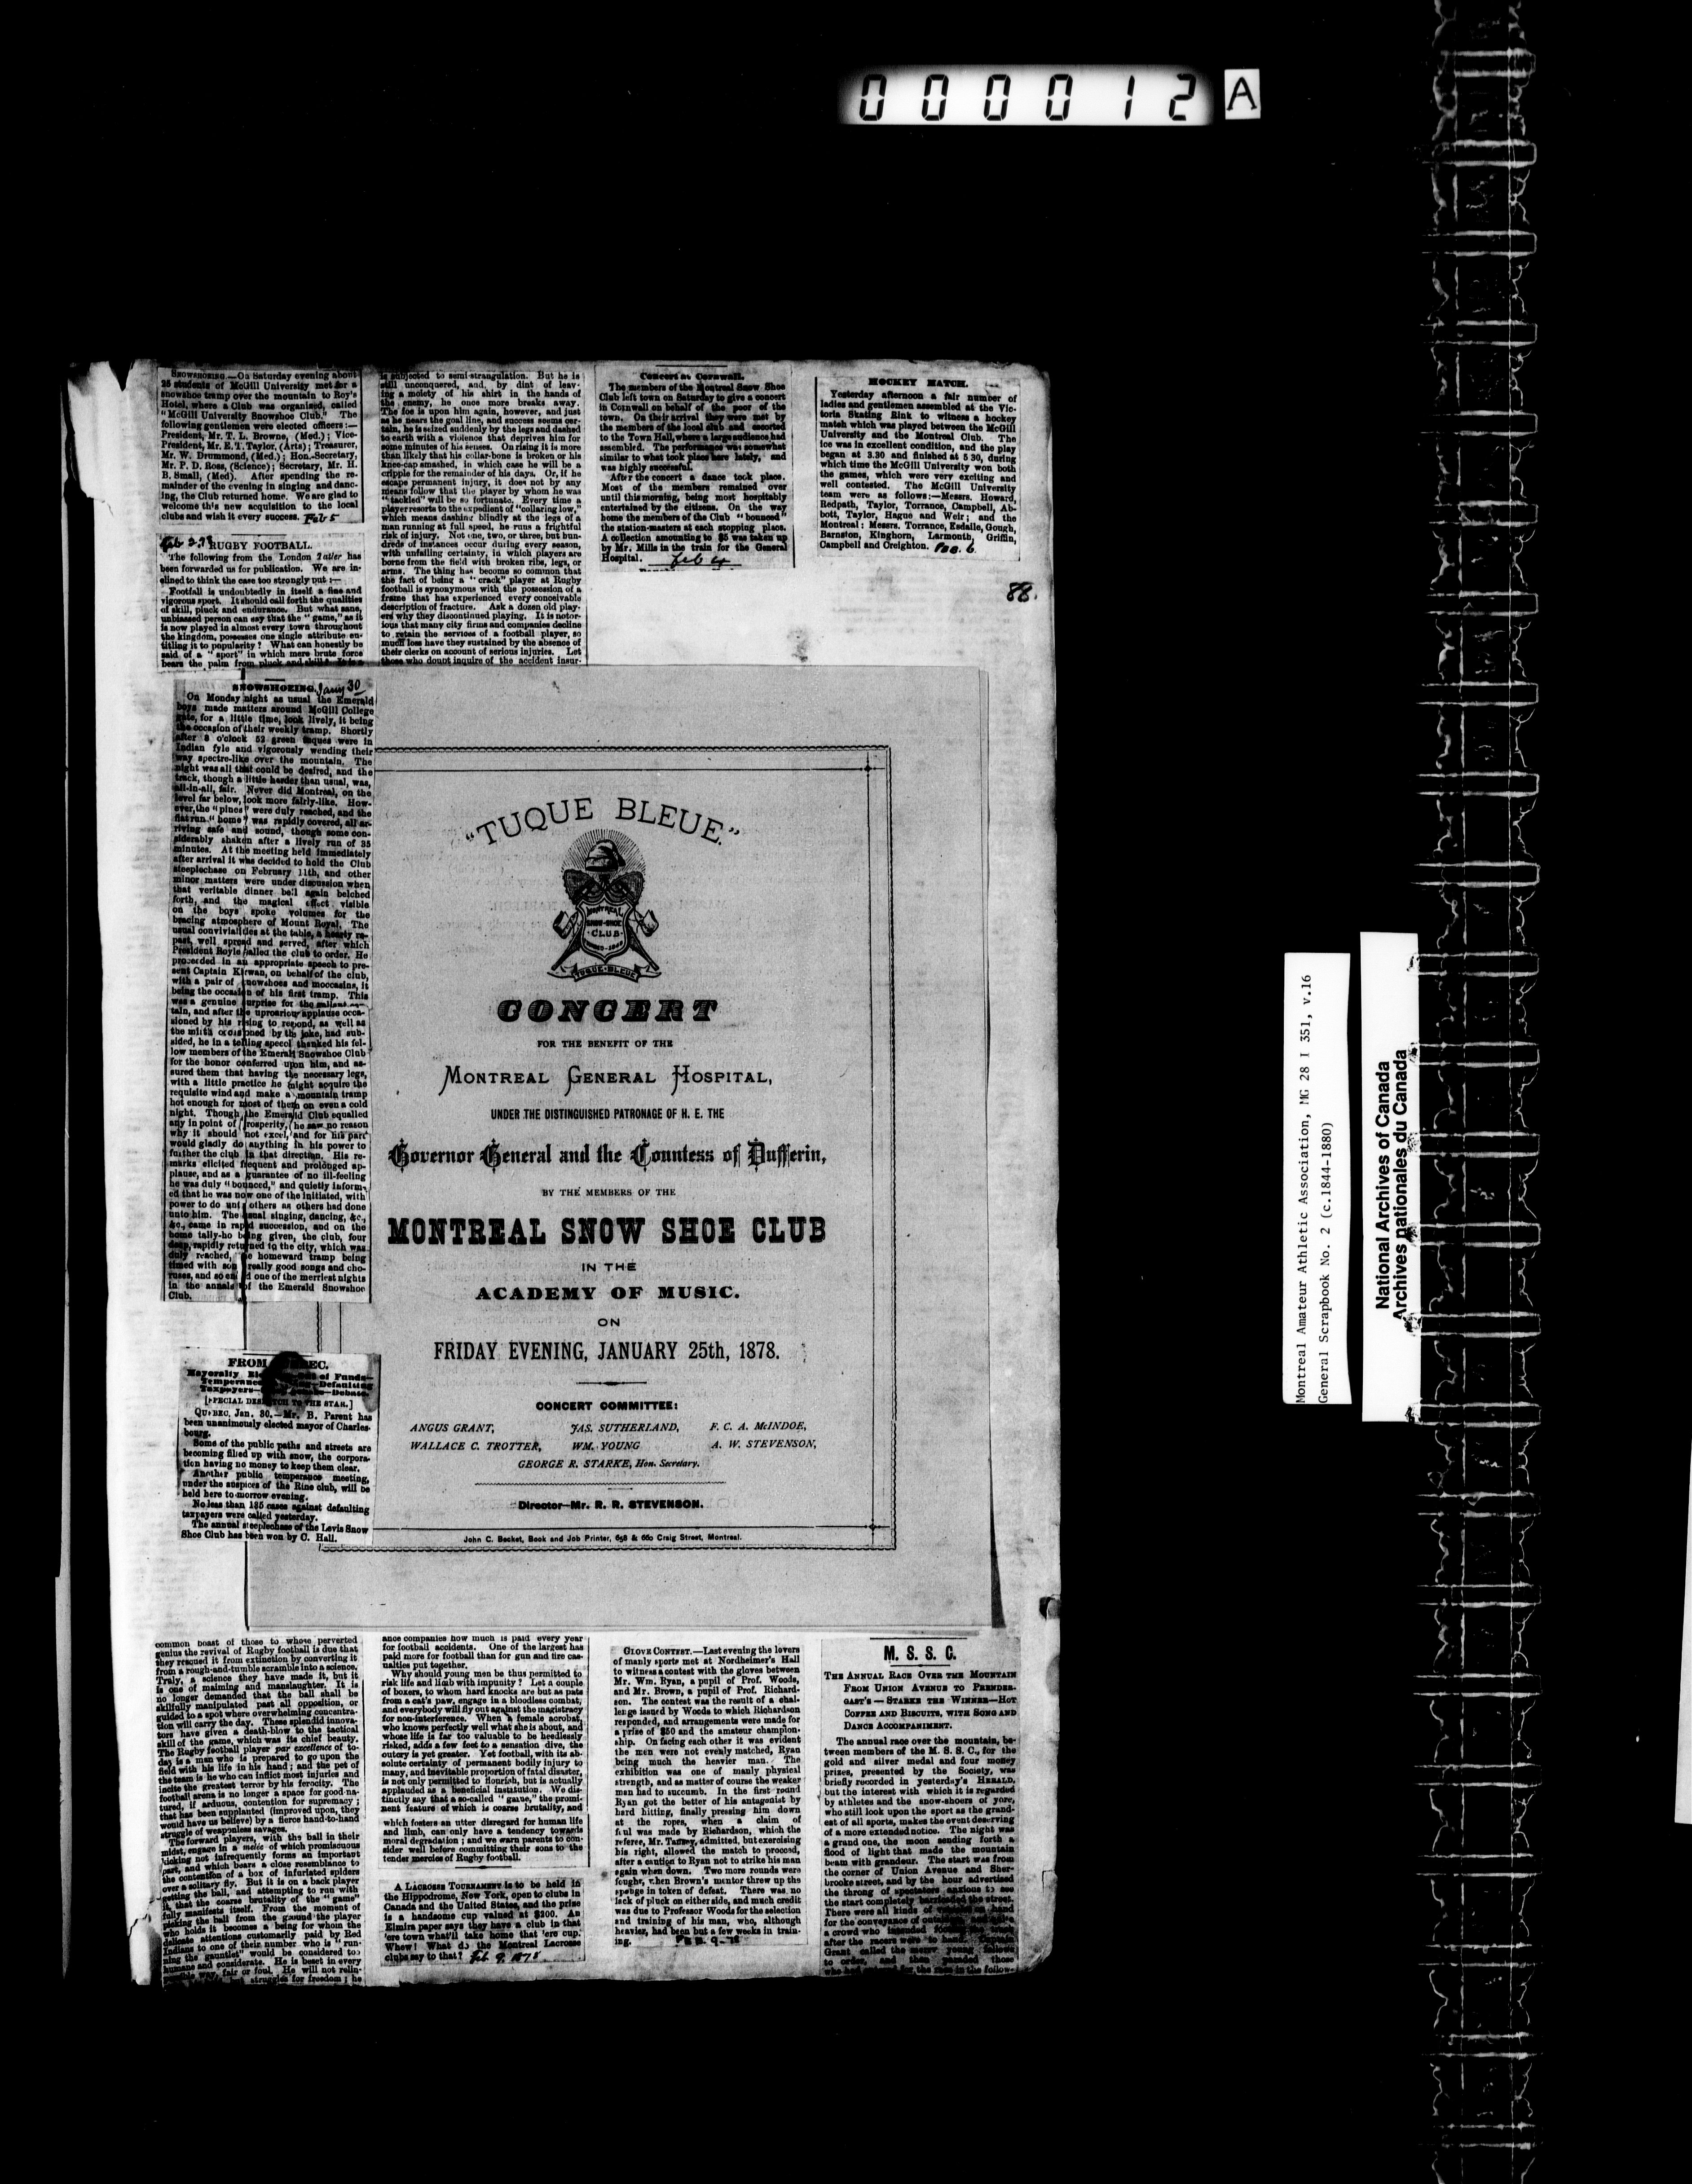 000012 A
SNOWSHOEING.—On Saturday evening about
25 students of McGill University met for a
snowshoe tramp over the mountain to Roy's
Hotel, where a Club was organised, called
"McGill University Snowshoe Club." The
following gentlemen were elected officers:—
President, Mr. T. L. Browne, (Med.); Vice-
President, Mr. E. T. Taylor, (Arts); Treasurer,
Mr. W. Drummond, (Med.); Hon.-Secretary,
Mr. P. D. Ross, (Science); Secretary, Mr. H.
B. Small, (Med). After spending the re-
mainder of the evening in singing and danc-
ing, the Club returned home. We are glad to
welcome this new acquisition to the local
clubs and wish it every success. Feb 5
RUGBY FOOTBALL.
The following from the London Tatler has
been forwarded us for publication. We are in-
clined to think the case too strongly put:—
Footfall is undoubtedly in itself a fine and
vigorous sport. It should call forth the qualities
of skill, pluck and endurance. But what sane,
unbiassed person can say that the "game," as it
is now played in almost every town throughout
the kingdom, possesses one single attribute en-
titling it to popularity? What can honestly be
said of a "sport" in which mere brute force
bears the palm from pluck and skill?
is subjected to semi-strangulation. But he is
still unconquered, and, by dint of leav-
ing a moiety of his shirt in the hands of
the enemy, he once more breaks away.
The foe is upon him again, however, and just
as he nears the goal line, and success seems cer-
tain, he is seized suddenly by the legs and dashed
to earth with a violence that deprives him for
some minutes of his senses. On rising it is more
than likely that his collar-bone is broken or his
knee-cap smashed, in which case he will be a
cripple for the remainder of his days. Or, if he
escape permanent injury, it does not by any
means follow that the player by whom he was
"tackled" will be so fortunate. Every time a
player resorts to the expedient of "collaring low,"
which means dashing blindly at the legs of a
man running at full speed, he runs a frightful
risk of injury. Not one, two, or three, but hun-
dreds of instances occur during every season,
with unfailing certainty, in which players are
borne from the field with broken ribs, legs, or
arms. The thing has become so common that
the fact of being a "crack" player at Rugby
football is synonymous with the possession of a
frame that has experienced every conceivable
description of fracture. Ask a dozen old play-
ers why they discontinued playing. It is notor-
ious that many city firms and companies decline
to retain the services of a football player, so
much loss have they sustained by the absence of
their clerks on account of serious injuries. Let
those who doubt inquire of the accident insur-
Concert at Cornwall.
The members of the Montreal Snow Shoe
Club left town on Saturday to give a concert
in Cornwall on behalf of the poor of the
town. On their arrival they were met by
the members of the local club and escorted
to the Town Hall, where a large audience had
assembled. The performance was somewhat
similar to what took place here lately, and
was highly successful.
After the concert a dance took place.
Most of the members remained over
until this morning, being most hospitably
entertained by the citizens. On the way
home the members of the Club "bounced"
the station-masters at each stopping place.
A collection amounting to $5 was taken up
by Mr. Mills in the train for the General
Hospital. Feb 4
HOCKEY MATCH.
Yesterday afternoon a fair number of
ladies and gentlemen assembled at the Vic-
toria Skating Rink to witness a hockey
match which was played between the McGill
University and the Montreal Club. The
ice was in excellent condition, and the play
began at 3.30 and finished at 5 30, during
which time the McGill University won both
the games, which were very exciting and
well contested. The McGill University
team were as follows:—Messrs. Howard,
Redpath, Taylor, Torrance, Campbell, Ab-
bott, Taylor, Hague and Weir; and the
Montreal: Messrs. Torrance, Esdaile, Gough,
Barnston, Kinghorn, Larmonth, Griffin,
Campbell and Creighton. Feb. 6
88.
SNOWSHOEING. Jany 30
On Monday night as usual the Emerald
boys made matters around McGill College
gate, for a little time, look lively, it being
the occasion of their weekly tramp. Shortly
after 8 o'clock 52 green tuques were in
Indian fyle and vigorously wending their
way spectre-like over the mountain. The
night was all that could be desired, and the
track, though a little harder than usual, was,
all-in-all, fair. Never did Montreal, on the
level far below, look more fairly-like. How-
ever, the "pines" were duly reached, and the
flat run "home" was rapidly covered, all ar-
riving safe and sound, though some con-
siderably shaken after a lively run of 35
minutes. At the meeting held immediately
after arrival it was decided to hold the Club
steeplechase on February 11th, and other
minor matters were under discussion when
that veritable dinner bell again belched
forth, and the magical effect visible
on the boys spoke volumes for the
bracing atmosphere of Mount Royal. The
usual convivialities at the table, a hearty re-
past, well spread and served, after which
President Boyle called the club to order. He
proceeded in an appropriate speech to pre-
sent Captain Kirwan, on behalf of the club,
with a pair of snowshoes and moccasins, it
being the occasion of his first tramp. This
was a genuine surprise for the gallant cap-
tain, and after the uproarious applause occa-
sioned by his rising to respond, as well as
the mirth occasioned by the joke, had sub-
sided, he in a telling speech thanked his fel-
low members of the Emerald Snowshoe Club
for the honor conferred upon him, and as-
sured them that having the necessary legs,
with a little practice he might acquire the
requisite wind and make a mountain tramp
hot enough for most of them on even a cold
night. Though the Emerald Club equalled
any in point of prosperity, he saw no reason
why it should not excel, and for his part
would gladly do anything in his power to
further the club in that direction. His re-
marks elicited frequent and prolonged ap-
plause, and as a guarantee of no ill-feeling
he was duly "bounced," and quietly inform-
ed that he was now one of the initiated, with
power to do unto others as others had done
unto him. The usual singing, dancing, &c.,
&c., came in rapid succession, and on the
home tally-ho being given, the club, four
deep, rapidly returned to the city, which was
duly reached, the homeward tramp being
timed with some really good songs and cho-
ruses, and so ended one of the merriest nights
in the annals of the Emerald Snowshoe
Club.
"TUQUE BLEUE."
MONTREAL
SNOW-SHOE
CLUB
TUQUE-BLEUE
CONCERT
FOR THE BENEFIT OF THE
MONTREAL GENERAL HOSPITAL,
UNDER THE DISTINGUISHED PATRONAGE OF H. E. THE
Governor General and the Countess of Dufferin,
BY THE MEMBERS OF THE
MONTREAL SNOW SHOE CLUB
IN THE
ACADEMY OF MUSIC.
ON
FRIDAY EVENING, JANUARY 25th, 1878.
CONCERT COMMITTEE:
ANGUS GRANT, JAS. SUTHERLAND, F. C. A. McINDOE,
WALLACE C. TROTTER, WM. YOUNG A. W. STEVENSON,
GEORGE R. STARKE, Hon. Secretary.
Director—Mr. R. R. STEVENSON.
John C. Becket, Book and Job Printer, 658 & 660 Craig Street, Montreal.
FROM EC.
Mayoralty of Funds—
Temperance Defaulting
Taxpayers— Debate.
[SPECIAL DESPATCH TO THE STAR.]
QUEBEC, Jan. 30.—Mr. B. Parent has
been unanimously elected mayor of Charles-
bourg.
Some of the public paths and streets are
becoming filled up with snow, the corpora-
tion having no money to keep them clear.
Another public temperance meeting,
under the auspices of the Rine club, will be
held here to-morrow evening.
No less than 185 cases against defaulting
taxpayers were called yesterday.
The annual steeplechase of the Levis Snow
Shoe Club has been won by C. Hall.
common boast of those to whose perverted
genius the revival of Rugby football is due that
they rescued it from extinction by converting it
from a rough-and-tumble scramble into a science.
Truly, a science they have made it, but it
is one of maiming and manslaughter. It is
no longer demanded that the ball shall be
skilfully manipulated past all opposition, or
guided to a spot where overwhelming concentra-
tion will carry the day. These splendid innova-
tors have given a death-blow to the tactical
skill of the game, which was its chief beauty.
The Rugby football player par excellence of to-
day is a man who is prepared to go upon the
field with his life in his hand; and the pet of
the team is he who can inflict most injuries and
incite the greatest terror by his ferocity. The
football arena is no longer a space for good-na-
tured, if arduous, contention for supremacy;
that has been supplanted (improved upon, they
would have us believe) by a fierce hand-to-hand
struggle of weaponless savages.
The forward players, with the ball in their
midst, engage in a melée of which promiscuous
kicking not infrequently forms an important
part, and which bears a close resemblance to
the contention of a box of infuriated spiders
over a solitary fly. But it is on a back player
getting the ball, and attempting to run with
it, that the coarse brutality of the "game"
fully manifests itself. From the moment of
picking the ball from the ground the player
who holds it becomes a being for whom the
delicate attentions customarily paid by Red
Indians to one of their number who is "run-
ning the gauntlet" would be considered too
humane and considerate. He is beset in every
way, fair or foul. He will not relin-
struggles for freedom; he
ance companies how much is paid every year
for football accidents. One of the largest has
paid more for football than for gun and fire cas-
ualties put together.
Why should young men be thus permitted to
risk life and limb with impunity? Let a couple
of boxers, to whom hard knocks are but as pats
from a cat's paw, engage in a bloodless combat,
and everybody will fly out against the magistracy
for non-interference. When a female acrobat,
who knows perfectly well what she is about, and
whose life is far too valuable to be heedlessly
risked, adds a few feet to a sensation dive, the
outcry is yet greater. Yet football, with its ab-
solute certainty of permanent bodily injury to
many, and inevitable proportion of fatal disaster,
is not only permitted to flourish, but is actually
applauded as a beneficial institution. We dis-
tinctly say that a so-called "game," the promi-
nent feature of which is coarse brutality, and
which fosters an utter disregard for human life
and limb, can only have a tendency towards
moral degradation; and we warn parents to con-
sider well before committing their sons to the
tender mercies of Rugby football.
A LACROSSE TOURNAMENT is to be held in
the Hippodrome, New York, open to clubs in
Canada and the United States, and the prize
is a handsome cup valued at $200. An
Elmira paper says they have a club in that
'ere town what'll take home that 'ere cup.
Whew! What do the Montreal Lacrosse
clubs say to that? Feb. 9. 1878
GLOVE CONTEST.—Last evening the lovers
of manly sports met at Nordheimer's Hall
to witness a contest with the gloves between
Mr. Wm. Ryan, a pupil of Prof. Woods,
and Mr. Brown, a pupil of Prof. Richard-
son. The contest was the result of a chal-
lenge issued by Woods to which Richardson
responded, and arrangements were made for
a prize of $50 and the amateur champion-
ship. On facing each other it was evident
the men were not evenly matched, Ryan
being much the heavier man. The
exhibition was one of manly physical
strength, and as matter of course the weaker
man had to succumb. In the first round
Ryan got the better of his antagonist by
hard hitting, finally pressing him down
at the ropes, when a claim of
foul was made by Richardson, which the
referee, Mr. Tansey, admitted, but exercising
his right, allowed the match to proceed,
after a caution to Ryan not to strike his man
again when down. Two more rounds were
fought, when Brown's mentor threw up the
sponge in token of defeat. There was no
lack of pluck on either side, and much credit
was due to Professor Woods for the selection
and training of his man, who, although
heavier, had been but a few weeks in train-
ing. FEB. 9-78
M. S. S. C.
THE ANNUAL RACE OVER THE MOUNTAIN
FROM UNION AVENUE TO PRENDER-
GAST'S — STARKE THE WINNER—HOT
COFFEE AND BISCUITS, WITH SONG AND
DANCE ACCOMPANIMENT.
The annual race over the mountain, be-
tween members of the M. S. S. C., for the
gold and silver medal and four money
prizes, presented by the Society, was
briefly recorded in yesterday's HERALD,
but the interest with which it is regarded
by athletes and the snow-shoers of yore,
who still look upon the sport as the grand-
est of all sports, makes the event deserving
of a more extended notice. The night was
a grand one, the moon sending forth a
flood of light that made the mountain
beam with grandeur. The start was from
the corner of Union Avenue and Sher-
brooke street, and by the hour advertised
the throng of spectators anxious to see
the start completely barricaded the street.
There were all kinds of
for the conveyance of
a crowd who intended
after the racers were
Grant called the merry young fellows
to order, and then
Montreal Amateur Athletic Association, MG 28 I 351, v.16
General Scrapbook No. 2 (c.1844-1880)
National Archives of Canada
Archives nationales du Canada